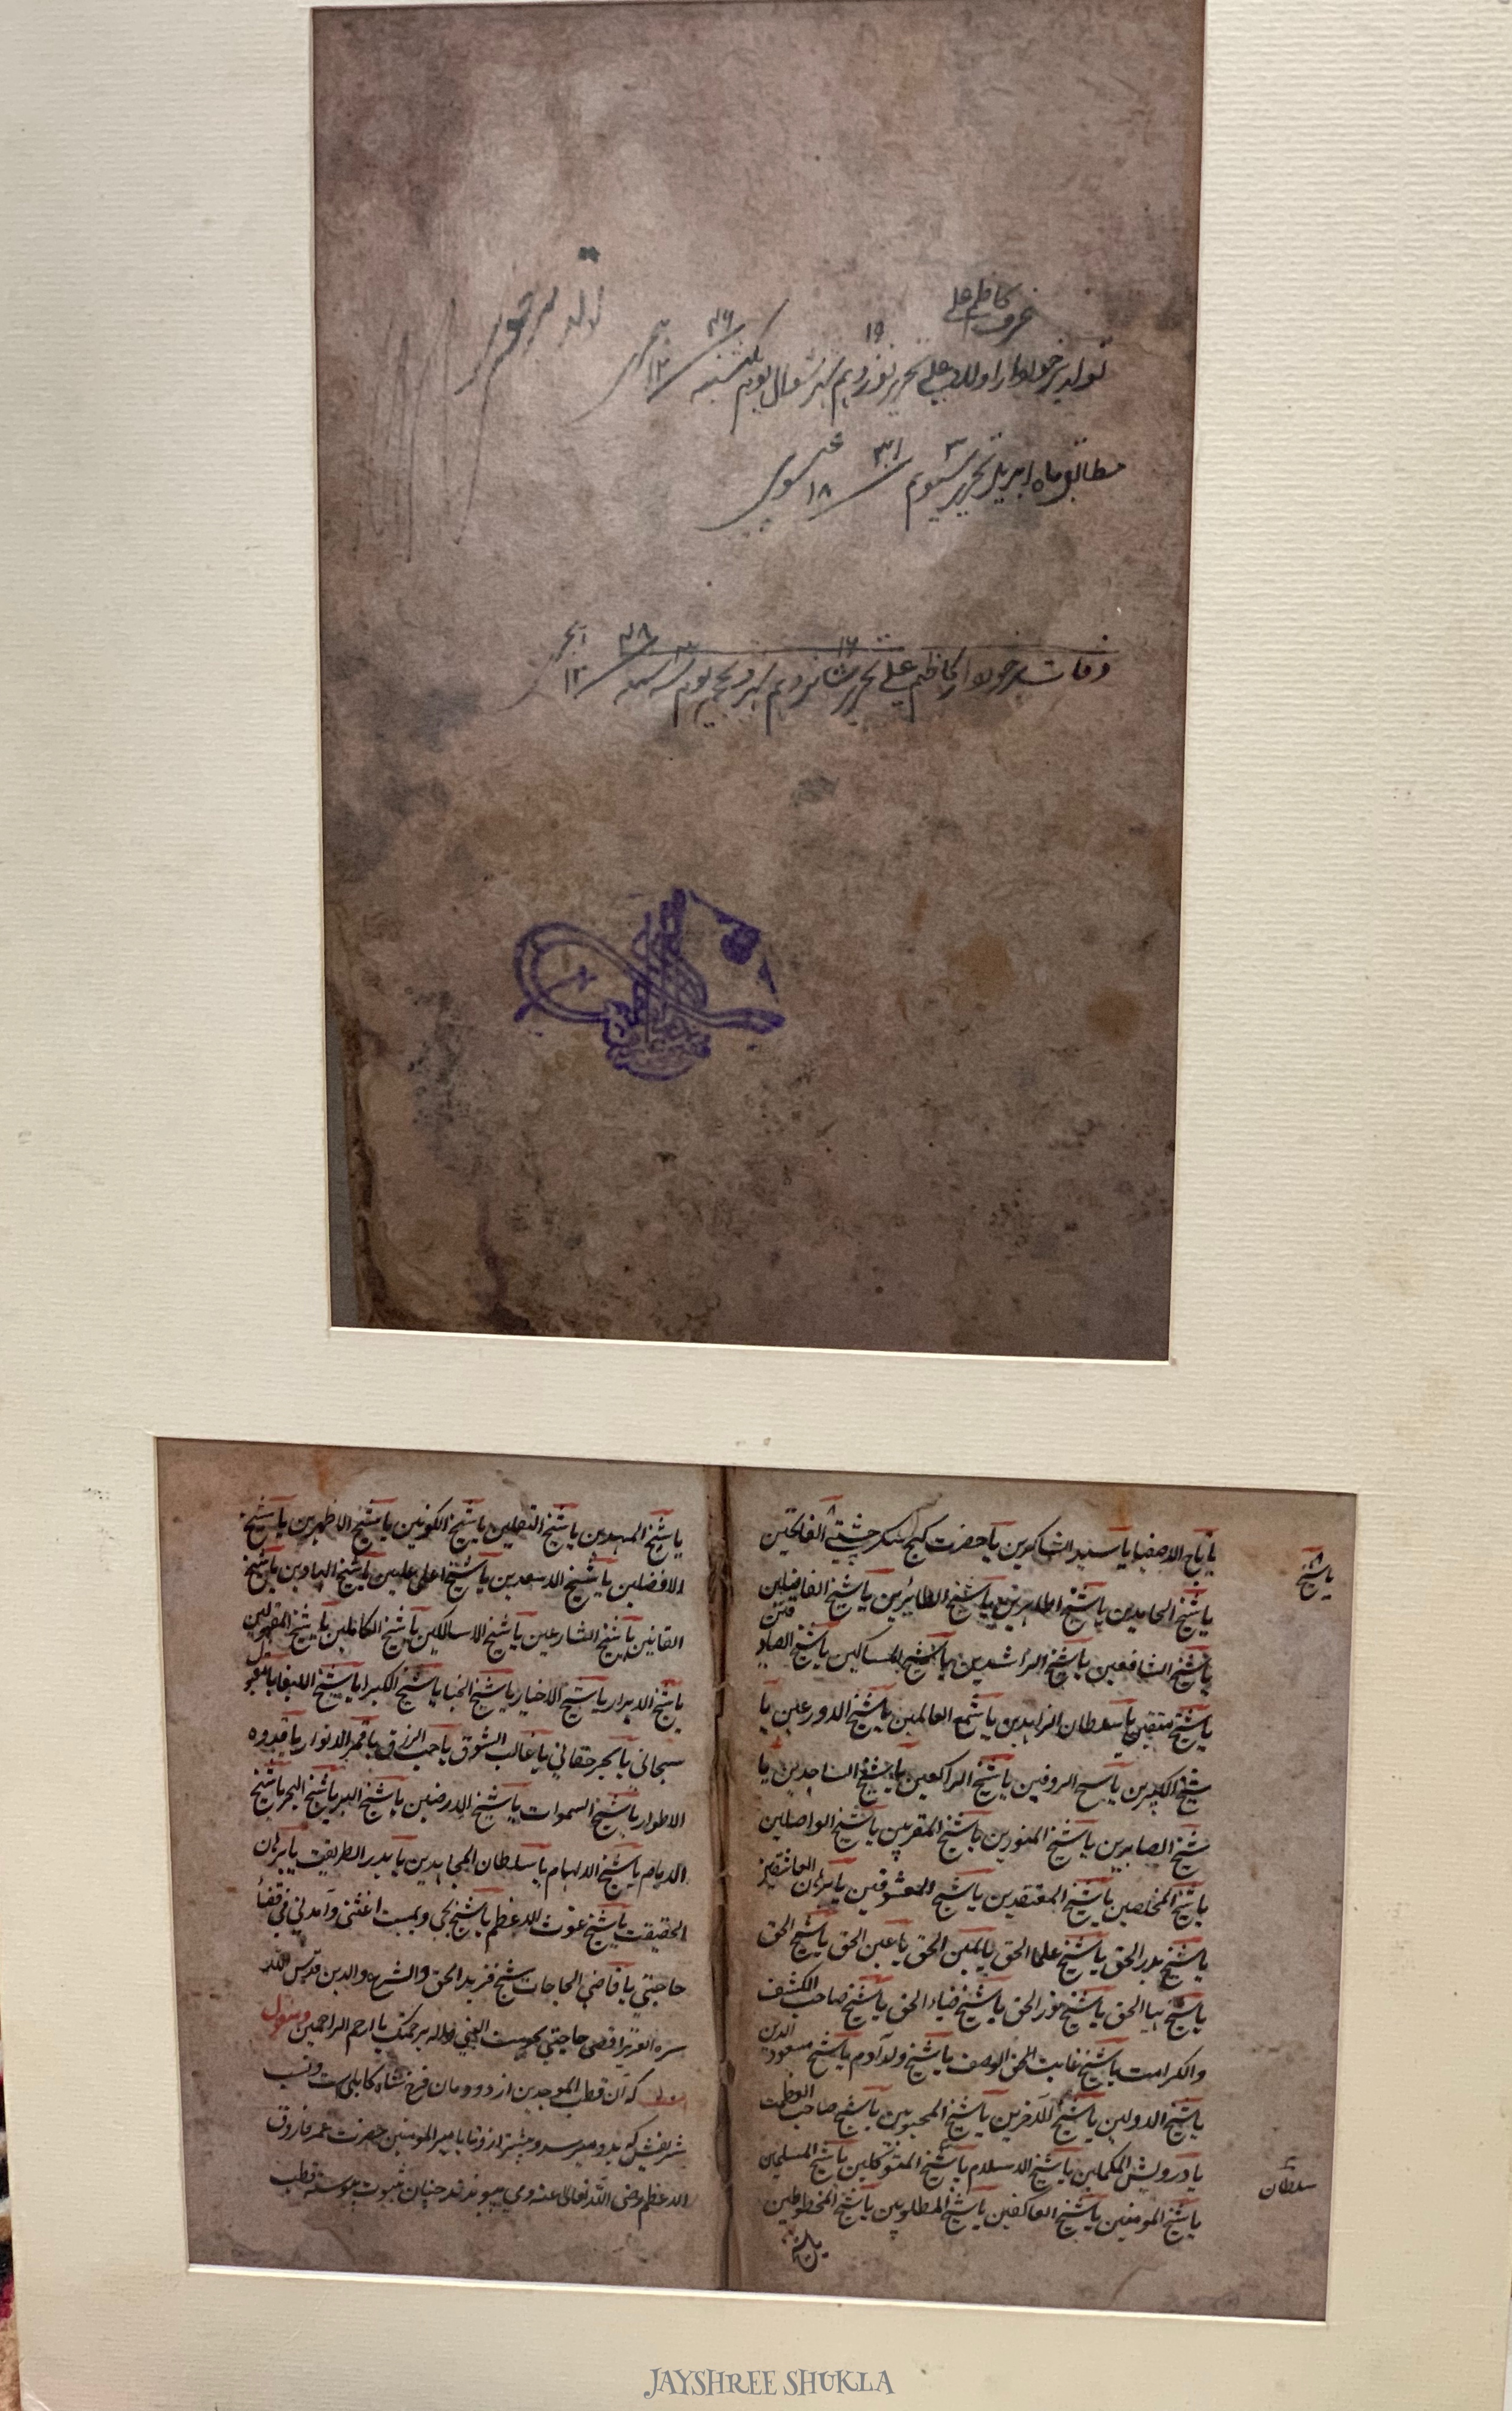 عرف کاظم علی
تولد برخوردار اولاد علی بتحریر نوزدهم ۱۹ شهر شوال یوم یکشنبه ۱۲۴۶ هجری
مطابق ماه اپریل بتحریر سیوم ۳ ۱۸۳۱ عیسوی
وفات برخوردار کاظم علی بتحریر شانزدهم ۱۶ شهر ذیحجه یوم سه شنبه ۱۲۴۸ هجری
یا تاج الاصفیا یا سید الشاکرین یا حضرت گنج شکر چشتی الفاتحین
یا شیخ
یا شیخ الحامدین یا شیخ الطاهرین یا شیخ الطائرین یا شیخ الفاضلین
یا شیخ الشافعین یا شیخ الراشدین یا شیخ المساکین یا شیخ الصادقین
یا شیخ متقین یا سلطان الزاهدین یا شمع العالمین یا شیخ الاورعین یا
شیخ الکبرین یا شیخ الروفین یا شیخ الراکعین یا شیخ الساجدین یا
شیخ الصابرین یا شیخ المنورین یا شیخ المقربین یا شیخ الواصلین
یا شیخ المخلصین یا شیخ المعتقدین یا شیخ المعشوقین یا برهان العاشقین
یا شیخ بدر الحق یا شیخ علما الحق یا یمین الحق یا عین الحق یا شیخ الحق
یا شیخ بها الحق یا شیخ نور الحق یا شیخ ضیاء الحق یا شیخ صاحب الکشف
والکرامت یا شیخ غایت الحق الوصف یا شیخ ولد آدم یا شیخ مسعود الدین
یا شیخ الاولین یا شیخ الآخرین یا شیخ المحبوبین یا شیخ صاحب العظمت
یا درویش المکملین یا شیخ الاسلام یا شیخ المتوکلین یا شیخ المسلمین
سلطان
یا شیخ المومنین یا شیخ العاکفین یا شیخ المطلوبین یا شیخ المخطوطین
یا شیخ
یا شیخ المهدین یا شیخ الثقلین یا شیخ الکونین یا شیخ الاظهرین یا شیخ
الافضلین یا شیخ الاسعدین یا شیخ اعلی علیین یا شیخ الهادین یا شیخ
القانین یا شیخ الشارعین یا شیخ الاسالکین یا شیخ الکاملین یا شیخ المقبولین
یا شیخ الابرار یا شیخ الاخیار یا شیخ النجبا یا شیخ الکبرا یا شیخ النقبا یا مقبول
سبحانی یا بحر حقانی یا غالب الشوق یا حب الرزق یا قمر الانوار یا قدوه
الاطوار یا شیخ السموات یا شیخ الارضین یا شیخ البر یا شیخ البحر یا شیخ
الایام یا شیخ الالهام یا سلطان المجاهدین یا بدر الطریقت یا برهان
الحقیقت یا شیخ غوث الاعظم یا شیخ یحیی ویمیت اغثنی وامددنی فی قضا
حاجتی یا قاضی الحاجات شیخ فرید الحق والشرع والدین قدس الله
سره العزیز اقضی حاجتی بحرمت النبی واله برحمتک یا ارحم الراحمین
که آن قطب الموحدین از دودمان فرخ شاه کابلی ست ونسب
شریفش که بدو میرسد و بیشتر ازو تا بامیر المومنین حضرت عمر فاروق
الاعظم رضی الله تعالی عنه ومی پیوندد چنان بثبوت پیوسته قطب
JAYSHREE SHUKLA